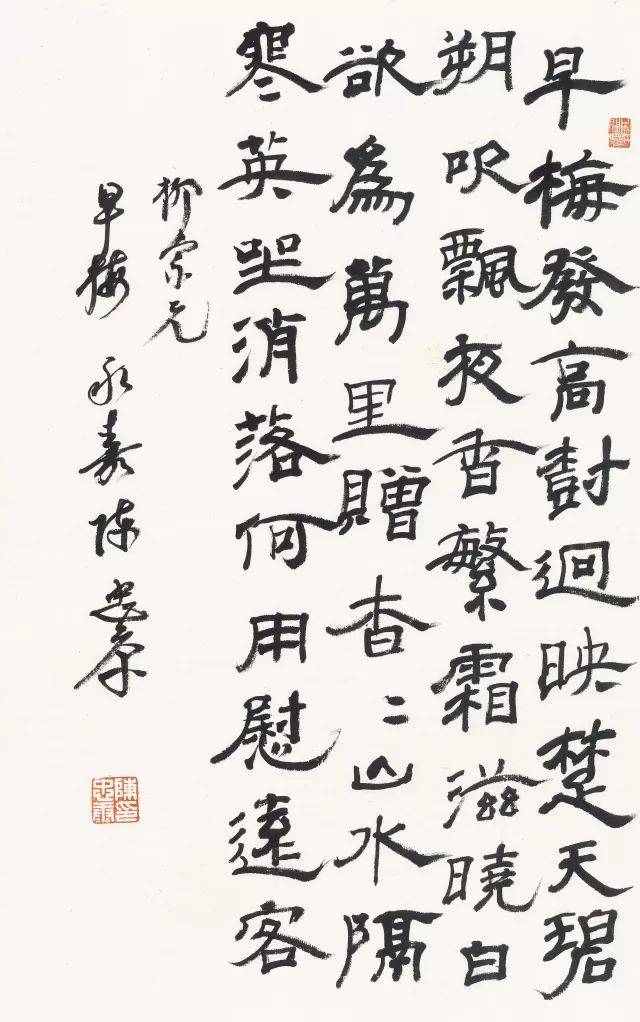 早梅發高樹迥映楚天碧
朔吹飄夜香繁霜滋曉白
欲爲萬里贈杳〻山水隔
寒英坐消落何用慰遠客
柳宗元
早梅 永嘉陳忠康
陳印忠康